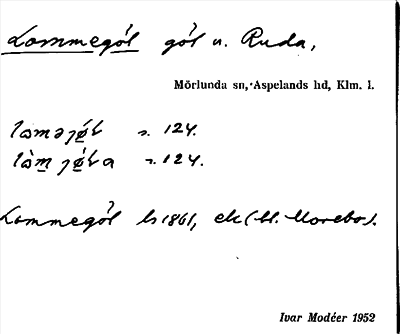 Lommegöl göl u. Ruda,
Mörlunda sn, Aspelands hd, Klm. l.
s. 124.
s. 124.
Lommegöl hs 1861, ek (bl. Morebo).
Ivar Modéer 1952